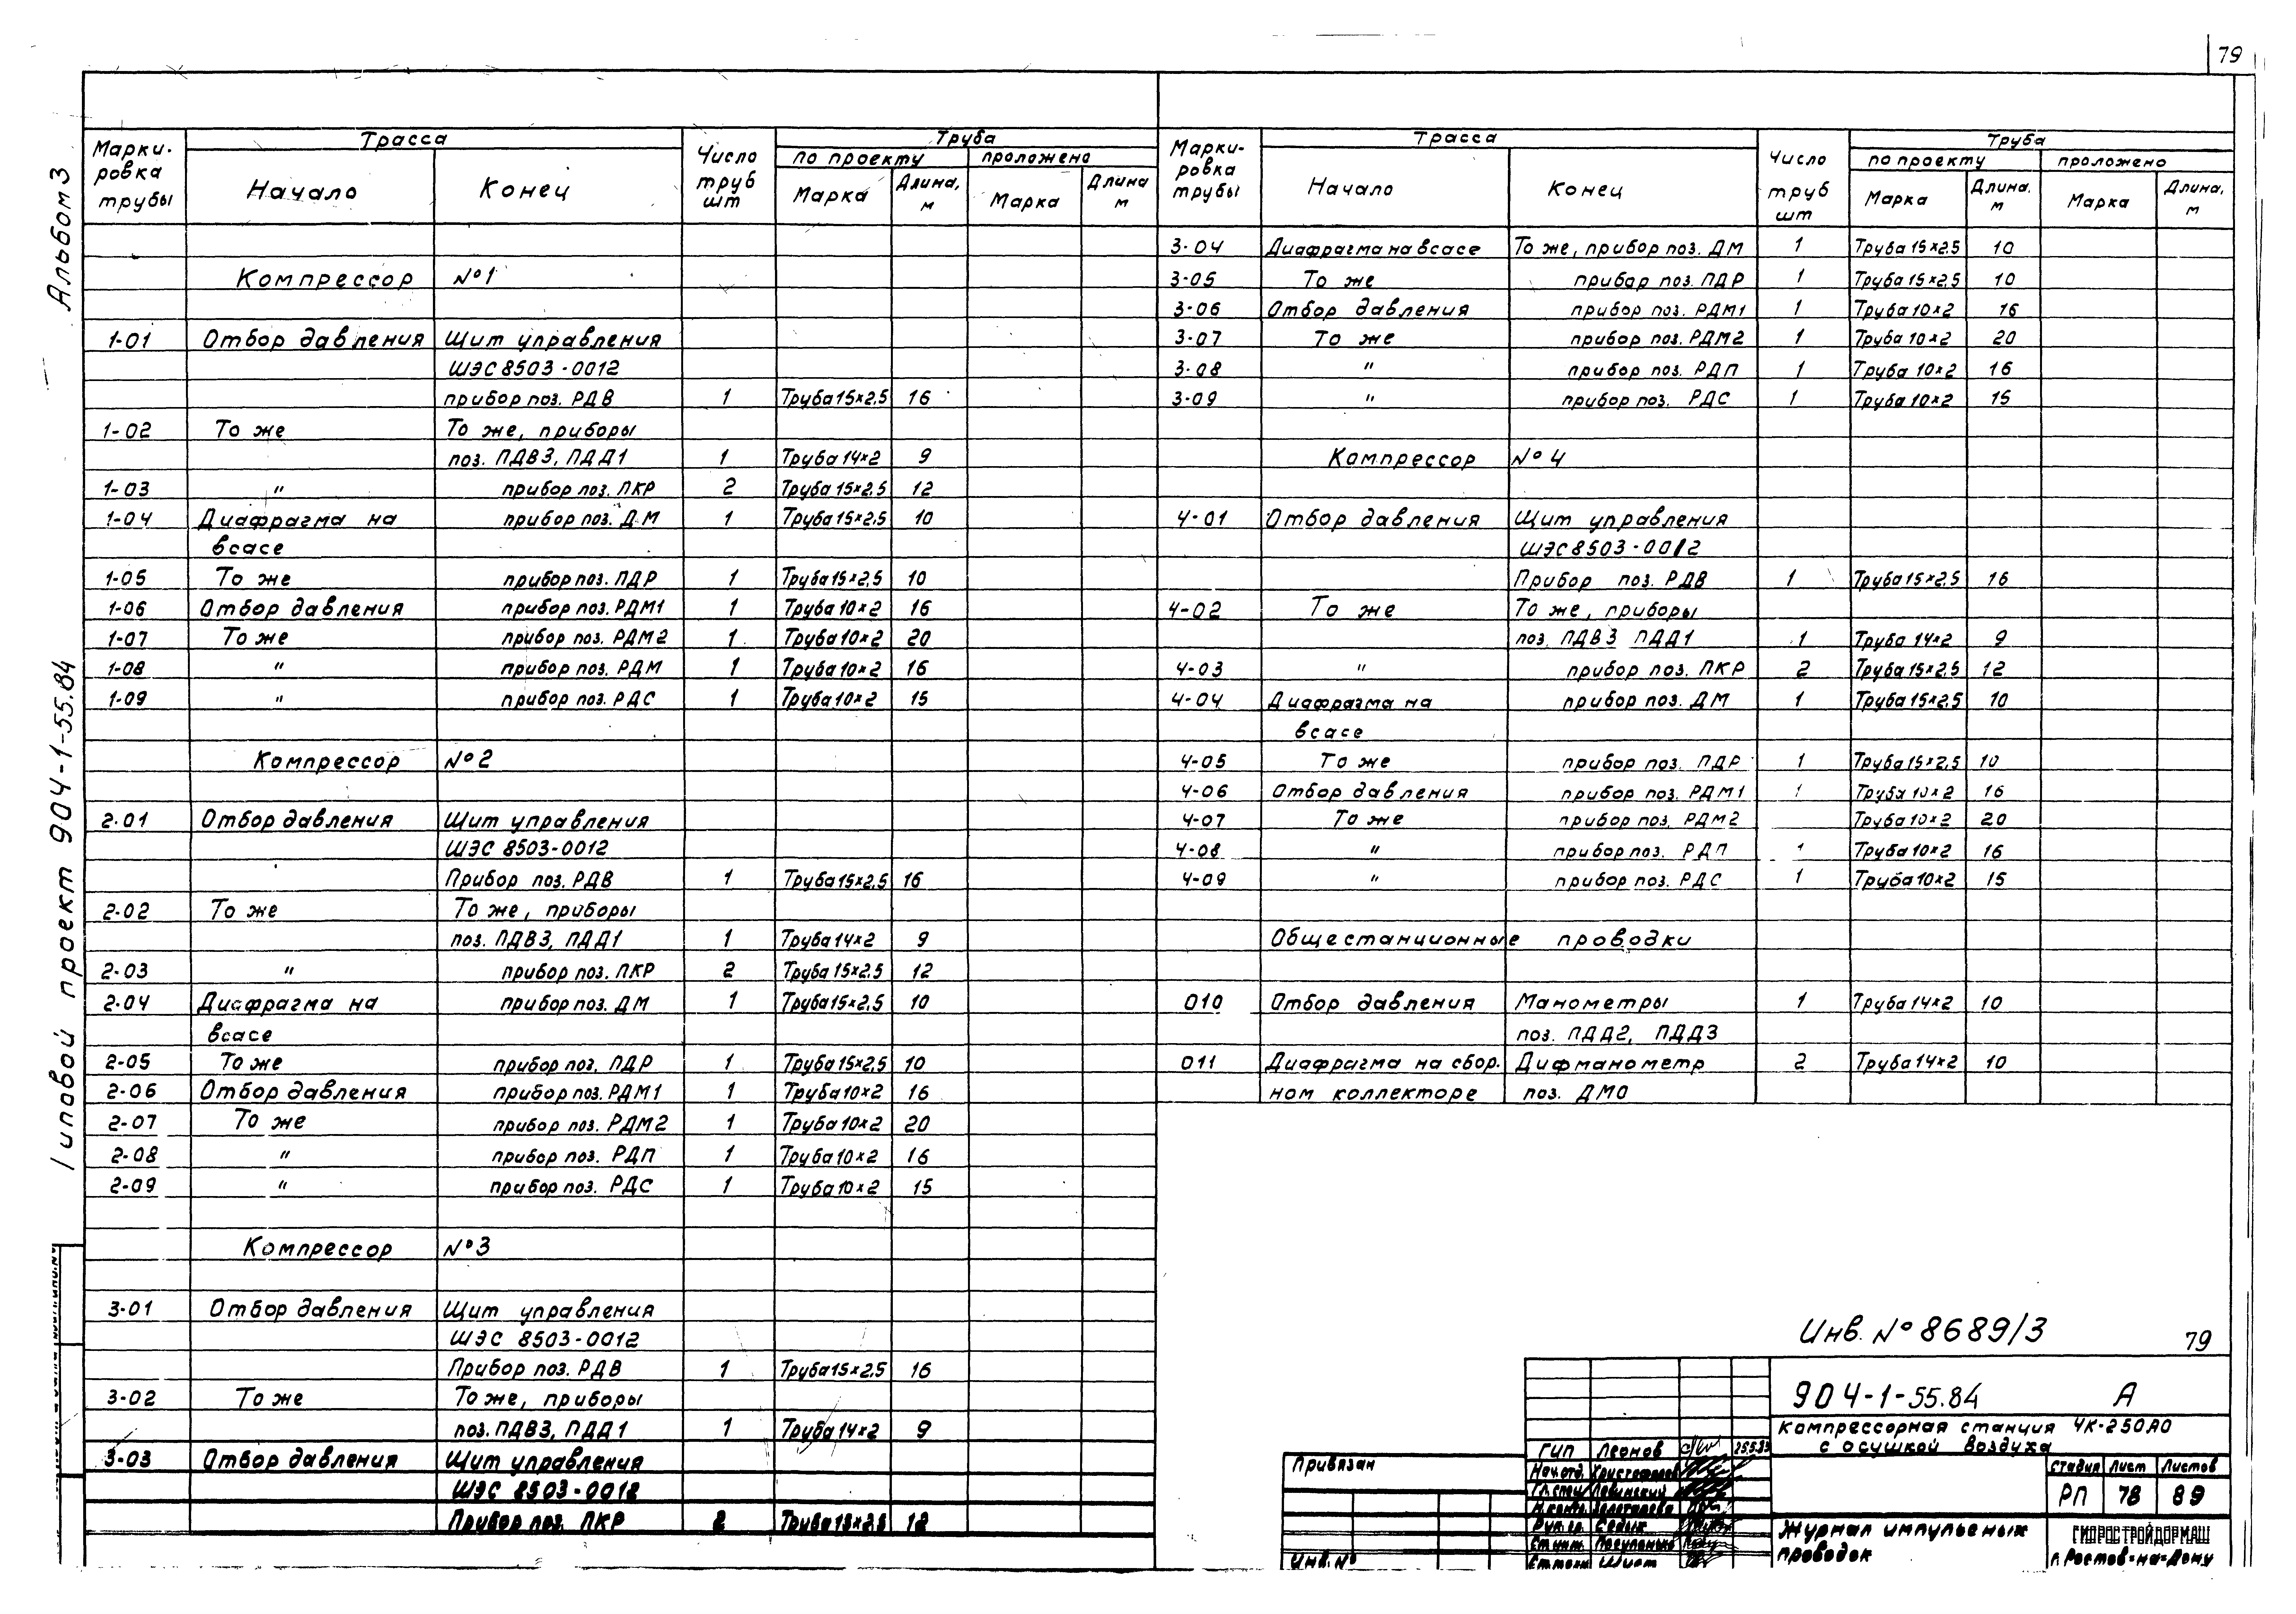 79
Альбом 3
Типовой проект 904-1-55.84
Марки-ровка трубы | Трасса | Число труб шт | Труба
Начало | Конец | по проекту | проложено
Марка | Длина, м | Марка | Длина м
Компрессор №1
1-01 Отбор давления Щит управления
ШЭС 8503-0012
прибор поз. РДВ 1 Труба 15×2,5 16
1-02 То же То же, приборы
поз. ПДВ3, ПДД1 1 Труба 14×2 9
1-03 " прибор поз. ПКР 2 Труба 15×2,5 12
1-04 Диафрагма на прибор поз. ДМ 1 Труба 15×2,5 10
всасе
1-05 То же прибор поз. ПДР 1 Труба 15×2,5 10
1-06 Отбор давления прибор поз. РДМ1 1 Труба 10×2 16
1-07 То же прибор поз. РДМ2 1 Труба 10×2 20
1-08 " прибор поз. РДМ 1 Труба 10×2 16
1-09 " прибор поз. РДС 1 Труба 10×2 15
Компрессор №2
2-01 Отбор давления Щит управления
ШЭС 8503-0012
Прибор поз. РДВ 1 Труба 15×2,5 16
2-02 То же То же, приборы
поз. ПДВ3, ПДД1 1 Труба 14×2 9
2-03 " прибор поз. ПКР 2 Труба 15×2,5 12
2-04 Диафрагма на прибор поз. ДМ 1 Труба 15×2,5 10
всасе
2-05 То же прибор поз. ПДР 1 Труба 15×2,5 10
2-06 Отбор давления прибор поз. РДМ1 1 Труба 10×2 16
2-07 То же прибор поз. РДМ2 1 Труба 10×2 20
2-08 " прибор поз. РДП 1 Труба 10×2 16
2-09 " прибор поз. РДС 1 Труба 10×2 15
Компрессор №3
3-01 Отбор давления Щит управления
ШЭС 8503-0012
Прибор поз. РДВ 1 Труба 15×2,5 16
3-02 То же То же, приборы
поз. ПДВ3, ПДД1 1 Труба 14×2 9
3-03 Отбор давления Щит управления
ШЭС 8503-0012
Прибор поз. ПКР 2 Труба 15×2,5 12
Марки-ровка трубы | Трасса | Число труб шт | Труба
Начало | Конец | по проекту | проложено
Марка | Длина, м | Марка | Длина, м
3-04 Диафрагма на всасе То же, прибор поз. ДМ 1 Труба 15×2,5 10
3-05 То же прибор поз. ПДР 1 Труба 15×2,5 10
3-06 Отбор давления прибор поз. РДМ1 1 Труба 10×2 16
3-07 То же прибор поз. РДМ2 1 Труба 10×2 20
3-08 " прибор поз. РДП 1 Труба 10×2 16
3-09 " прибор поз. РДС 1 Труба 10×2 15
Компрессор №4
4-01 Отбор давления Щит управления
ШЭС 8503-0012
Прибор поз. РДВ 1 Труба 15×2,5 16
4-02 То же То же, приборы
поз. ПДВ3 ПДД1 1 Труба 14×2 9
4-03 " прибор поз. ПКР 2 Труба 15×2,5 12
4-04 Диафрагма на прибор поз. ДМ 1 Труба 15×2,5 10
всасе
4-05 То же прибор поз. ПДР 1 Труба 15×2,5 10
4-06 Отбор давления прибор поз. РДМ1 1 Труба 10×2 16
4-07 То же прибор поз. РДМ2 Труба 10×2 20
4-08 " прибор поз. РДП 1 Труба 10×2 16
4-09 " прибор поз. РДС 1 Труба 10×2 15
Общестанционные проводки
010 Отбор давления Манометры 1 Труба 14×2 10
поз. ПДД2, ПДД3
011 Диафрагма на сбор- Дифманометр 2 Труба 14×2 10
ном коллекторе поз. ДМ0
Инв. № 8689/3 79
904-1-55.84 А
Компрессорная станция 4К-250А0
с осушкой воздуха
Привязан
Инв. №
ГИП Леонов 25.5.83
Нач. отд.
Гл. спец.
Н. контр.
Рук. гр. Седых
Ст. инж.
Ст. техн.
Стадия Лист Листов
РП 78 89
Журнал импульсных
проводок
ГИПРОСТРОЙДОРМАШ
г. Ростов-на-Дону